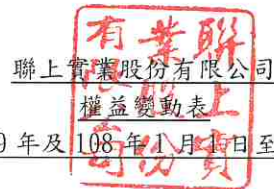 聯上實業股份有限公司
權益變動表
9年及108年1月1日至
聯上實
業股份
有限公司